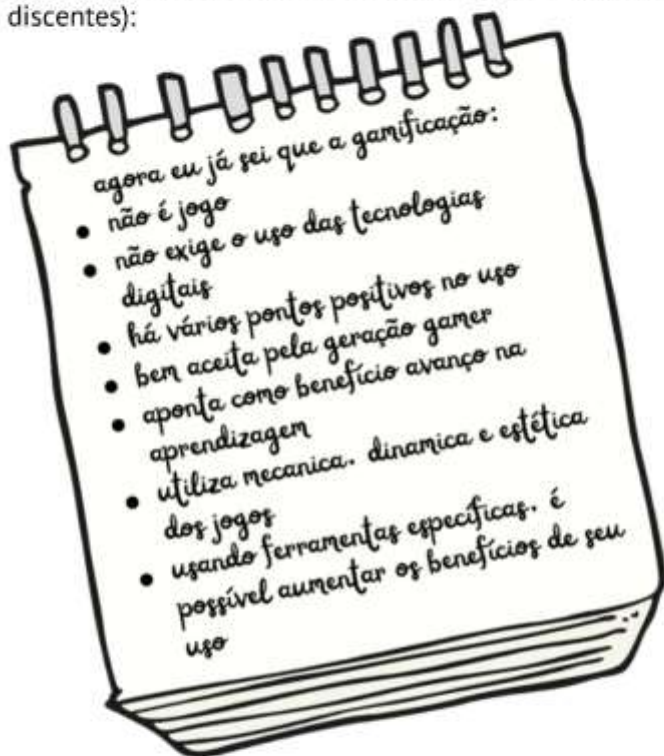 discentes):
agora eu já sei que a gamificação:
• não é jogo
• não exige o uso das tecnologias
digitais
• há vários pontos positivos no uso
• bem aceita pela geração gamer
• aponta como benefício avanço na
aprendizagem
• utiliza mecanica. dinamica e estética
dos jogos
• usando ferramentas específicas. é
possível aumentar os benefícios de seu
uso